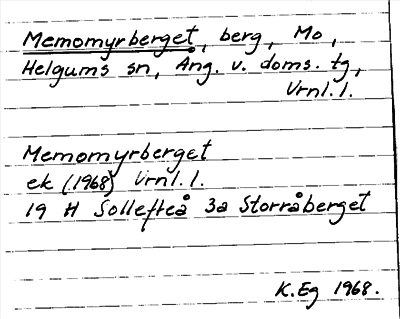 Memomyrberget, berg, Mo,
Helgums sn, Ång. v. doms. tg,
Vrnl. l.
Memomyrberget
ek (1968) Vrnl. l.
19 H Sollefteå 3a Storråberget
K. Eg 1968.